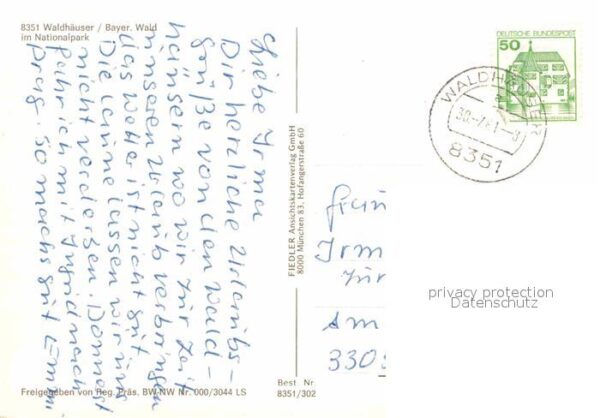 8351 Waldhäuser / Bayer. Wald
im Nationalpark
Liebe Irma
Dir herzliche Urlaubs-
grüße von den Wald-
häusern wo wir zur Zeit
unseren Urlaub verbringen
das Wetter ist nicht gut
Die Laune lassen wir uns
nicht verderben. Donnerst
fahr ich mit Ingrid nach
Prag - so machs gut Emmi
Freigegeben von Reg. Präs. BW-NW Nr. 000/3044 LS
FIEDLER Ansichtskartenverlag GmbH
8000 München 83, Hofangerstraße 60
Best Nr
8351/302
DEUTSCHE BUNDESPOST
50
WALDHÄUSER
8351
Irm
Am
330
privacy protection
Datenschutz